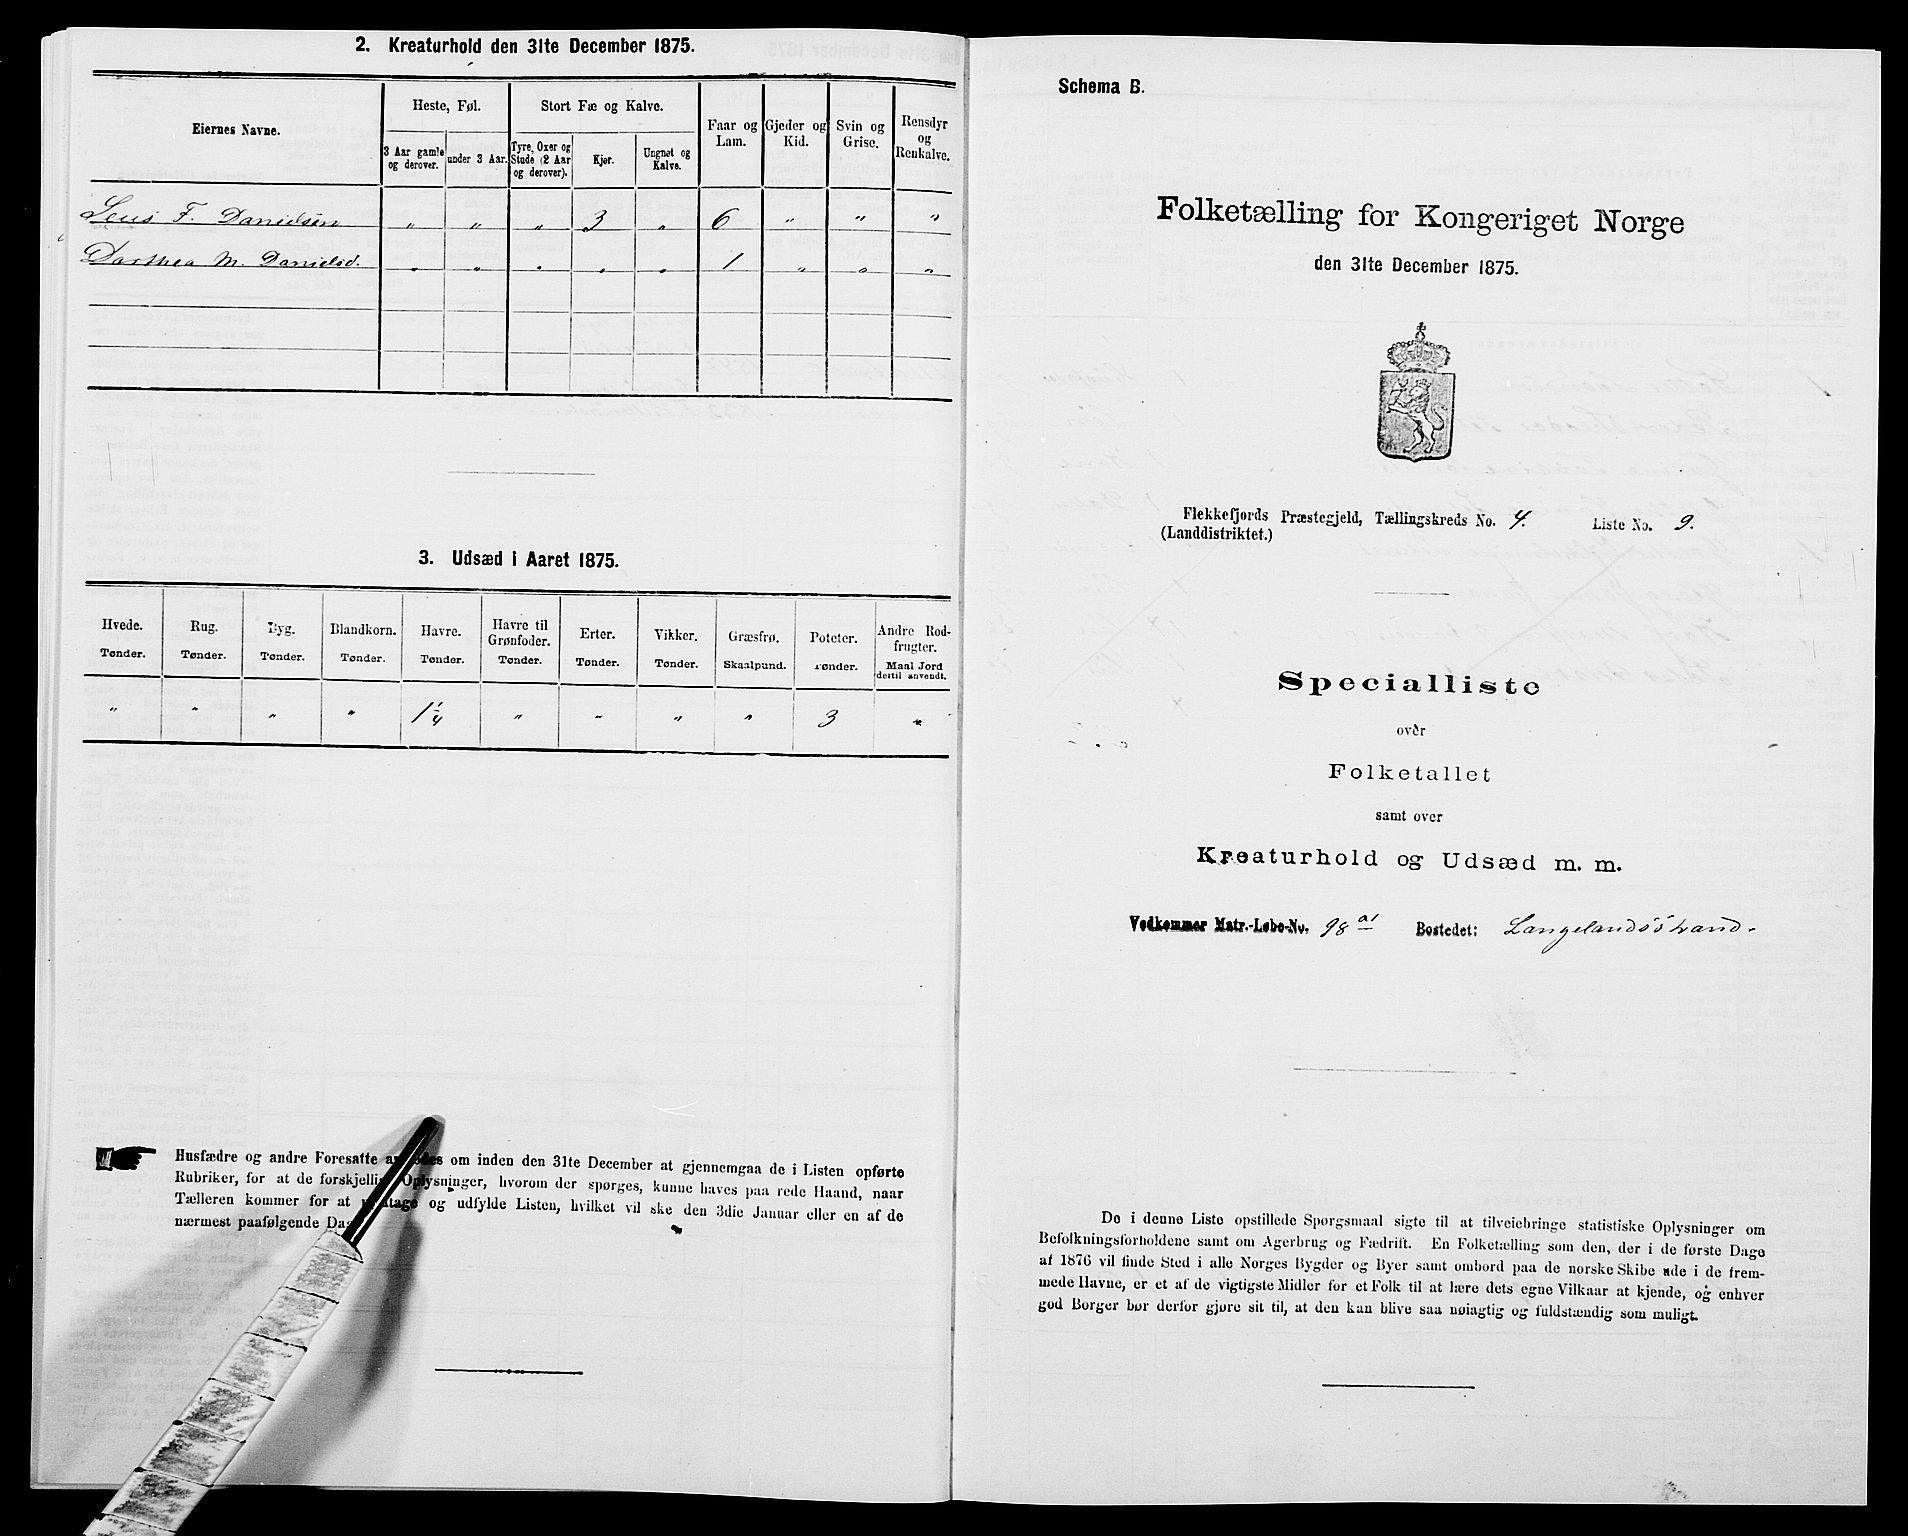 2. Kreaturhold den 31te December 1875.
Eiernes Navne.
Heste, Føl.
Stort Fæ og Kalve.
Faar og Lam.
Gjeder og Kid.
Svin og Grise.
Rensdyr og Renkalve.
3 Aar gamle og derover.
under 3 Aar.
Tyre, Oxer og Stude (2 Aar og derover).
Kjør.
Ungnøt og Kalve.
F. Danielsen " " " 3 " 6 " " "
Dorthea M. Danielsd. " " " " " 1 " " "
3. Udsæd i Aaret 1875.
Hvede. Tønder.
Rug. Tønder.
Byg. Tønder.
Blandkorn. Tønder.
Havre. Tønder.
Havre til Grønfoder. Tønder.
Erter. Tønder.
Vikker. Tønder.
Græsfrø. Skaalpund.
Poteter. Tønder.
Andre Rodfrugter. Maal Jord dertil anvendt.
" " " " 1 1/4 " " " " 3 "
Husfædre og andre Foresatte om inden den 31te December at gjennemgaa de i Listen opførte
Rubriker, for at de forskjellige Oplysninger, hvorom der spørges, kunne haves paa rede Haand, naar
Tælleren kommer for at og udfylde Listen, hvilket vil ske den 3die Januar eller en af de
nærmest paafølgende
Schema B.
Folketælling for Kongeriget Norge
den 31te December 1875.
Flekkefjords Præstegjeld, Tællingskreds No. 4. Liste No. 9.
(Landdistriktet.)
Specialliste
over
Folketallet
samt over
Kreaturhold og Udsæd m. m.
Vedkommer Matr.-Løbe-No. 98 a1 Bostedet: Langelandsstrand.
De i denne Liste opstillede Spørgsmaal sigte til at tilveiebringe statistiske Oplysninger om
Befolkningsforholdene samt om Agerbrug og Fædrift. En Folketælling som den, der i de første Dage
af 1876 vil finde Sted i alle Norges Bygder og Byer samt ombord paa de norske Skibe ude i de frem-
mede Havne, er et af de vigtigste Midler for et Folk til at lære dets egne Vilkaar at kjende, og enhver
god Borger bør derfor gjøre sit til, at den kan blive saa nøiagtig og fuldstændig som muligt.